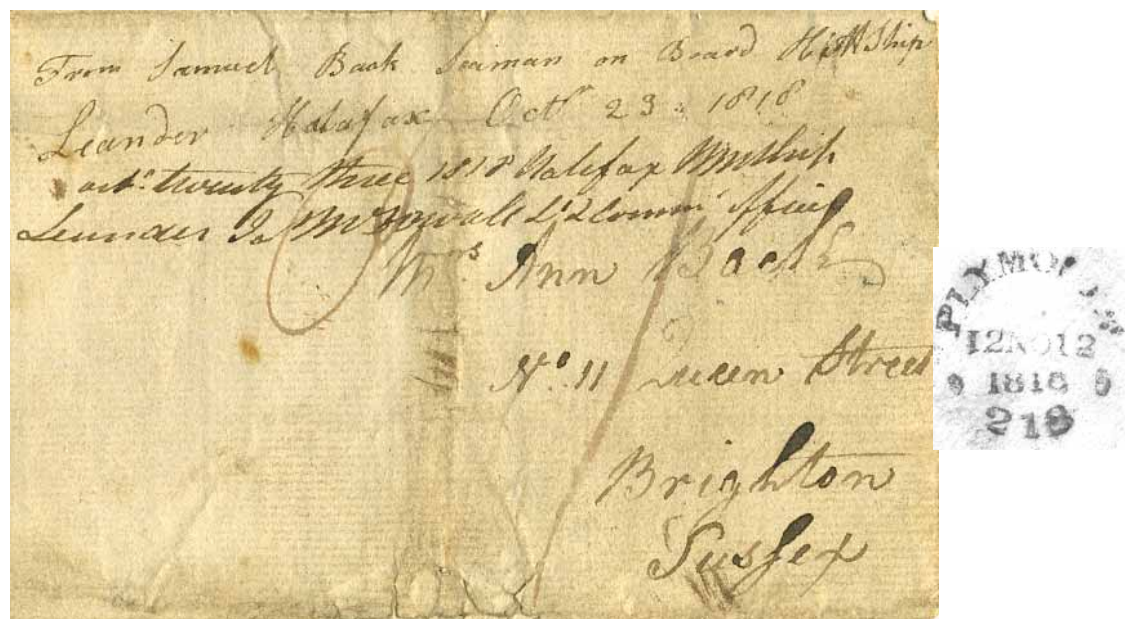 From Samuel Back Seaman on Board His M Ship
Leander Halafax Octr 23. 1818
octr. twenty three 1818 Halifax
Leander Lt & Comm officer
Mrs Ann Back
No. 11 Queen Street
Brighton
Sussex
1
PLYMOUTH
12NO12
1818
218